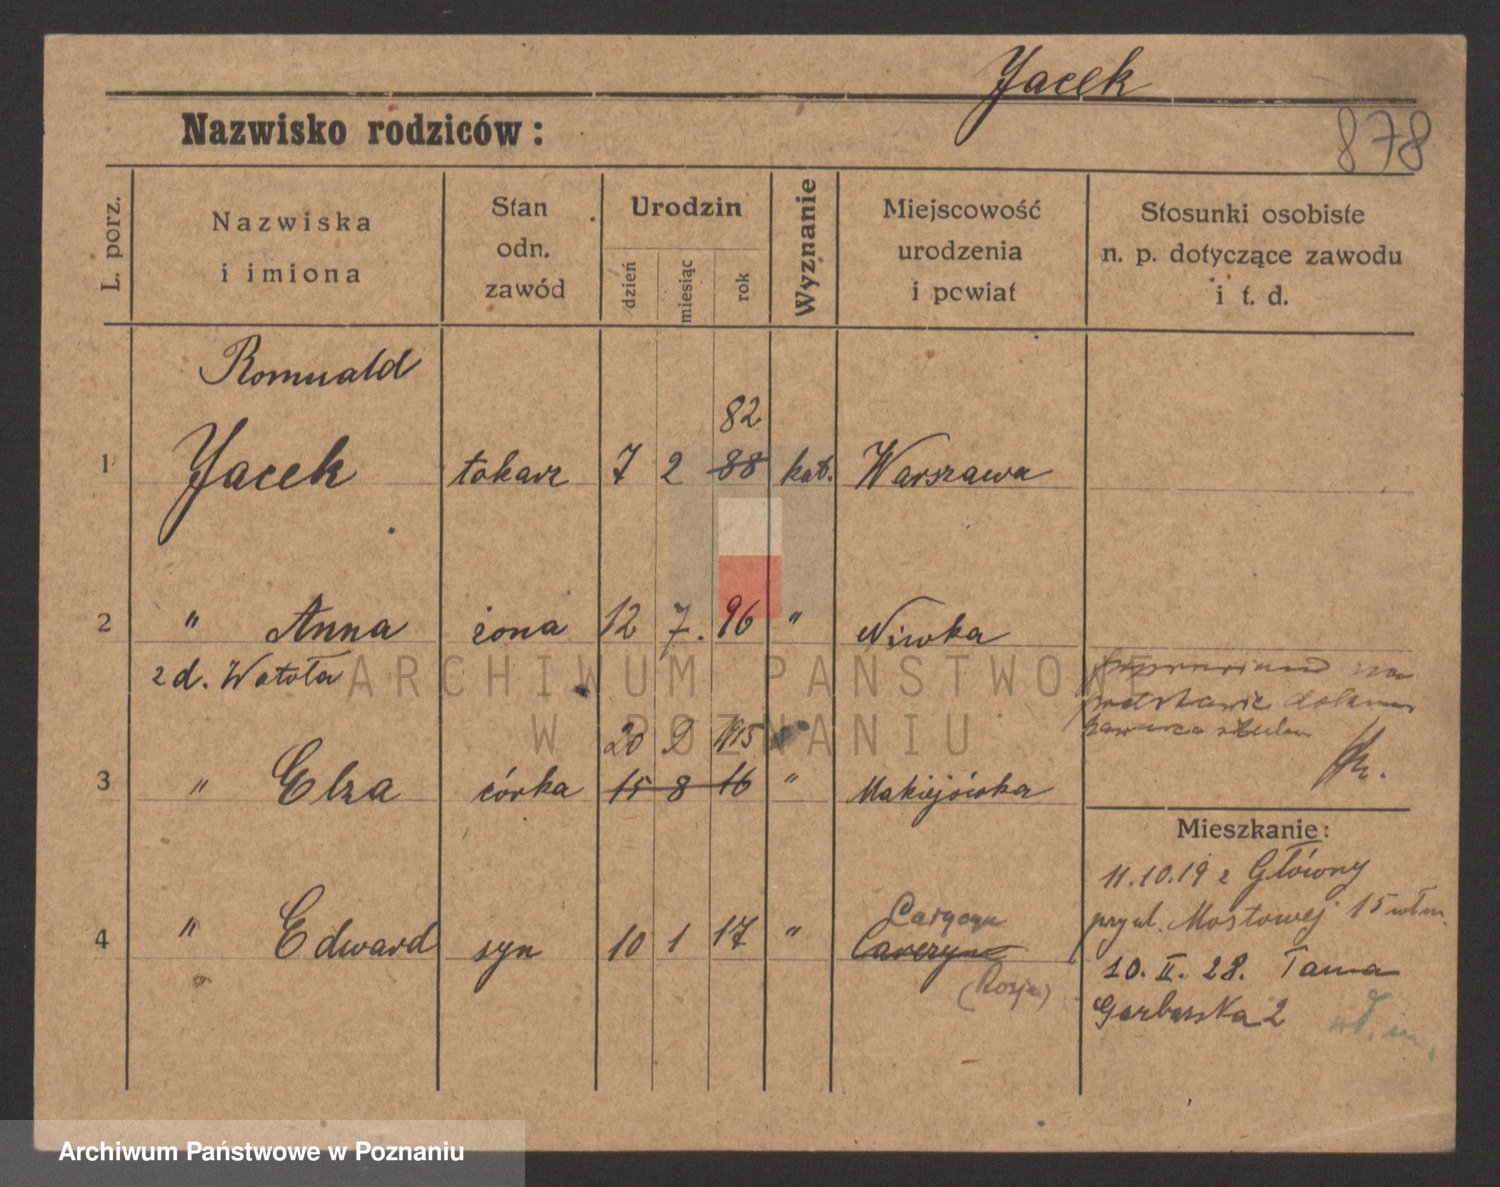 Jacek
878
Nazwisko rodziców:
L. porz.
Nazwiska
i imiona
Stan
odn.
zawód
Urodzin
dzień
miesiąc
rok
Wyznanie
Miejscowość
urodzenia
i powiat
Stosunki osobiste
n. p. dotyczące zawodu
i t. d.
Romuald
82
1 Jacek tokarz 7 2 88 kat. Warszawa
2 " Anna żona 12 7. 96 " Niwka
z d. Watoła
20 9 1915
3 " Elza córka 15 8 16 " Makiejówka
Mieszkanie:
11.10.19 z Główny
przy ul. Mostowej 15
Carycyn
4 " Edward syn 10 1 17 "
(Rosja)
10. II. 28. Tama
Garbarska 2
wł. m.
ARCHIWUM PAŃSTWOWE
W POZNANIU
Archiwum Państwowe w Poznaniu